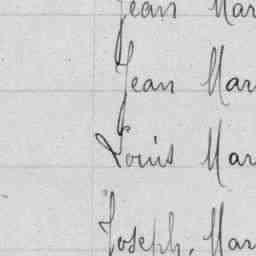 Jean Mar
Jean Mar
Louis Mar
Joseph, Mar